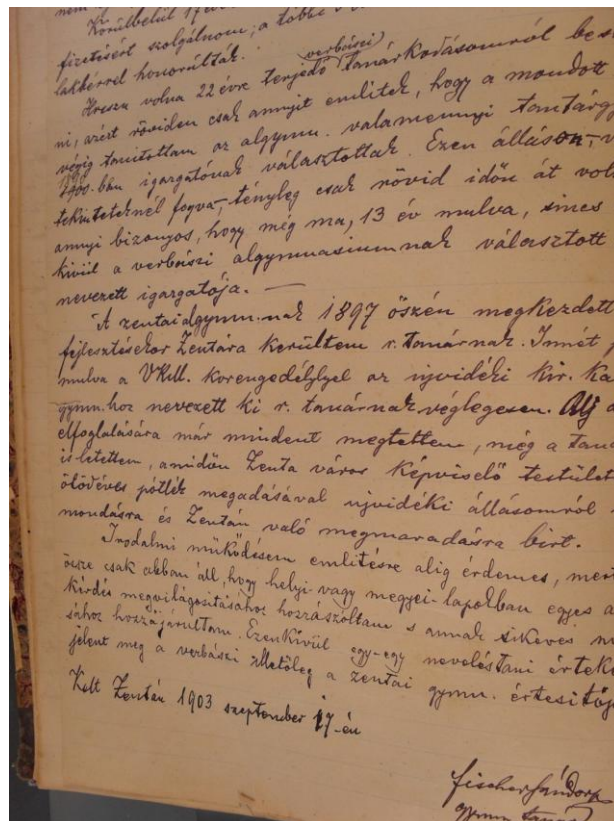 Körülbelül
fizetésért szolgálnom, a többi
lakbérrel honorálták.
Hosszu volna 22 évre terjedő verbászi tanárkodásomról bes
ni, azért röviden csak annyit emlitek, hogy a mondott
végig tanitottam az algymn. valamennyi tantárgy
bán igazgatónak választottak. Ezen álláson, v
tekinteteknél fogva, tényleg csak rövid időn át vol
annyi bizonyos, hogy még ma, 13 év mulva, sincs
kivül a verbászi algymnasiumnak választott
nevezett igazgatója. —
A zentai algymn.nak 1897 őszén megkezdett
fejlesztésekor Zentára kerültem r. tanárnak. Innét
mulva a VKM. korengedélylyel az ujvidéki kir. ka
gymn.hoz nevezett ki r. tanárnak véglegesen. Uj
elfoglalására már mindent megtettem, még a
is letettem, amidőn Zenta város képviselő testület
ötödéves pótlék megadásával ujvidéki állásomról
mondásra és Zentán való megmaradásra birt.
Irodalmi működésem emlitésre alig érdemes, mert
össze csak abban áll, hogy helyi vagy megyei lapokban egyes
kérdés megvilágositásához hozzászóltam s annak sikeres
sához hozzájárultam. Ezenkivül egy-egy neveléstani érteke
jelent meg a verbászi illetőleg a zentai gymn. értesitőj
Kelt Zentán 1903 szeptember 17-én
Fischer Sándor
gymn. tanár